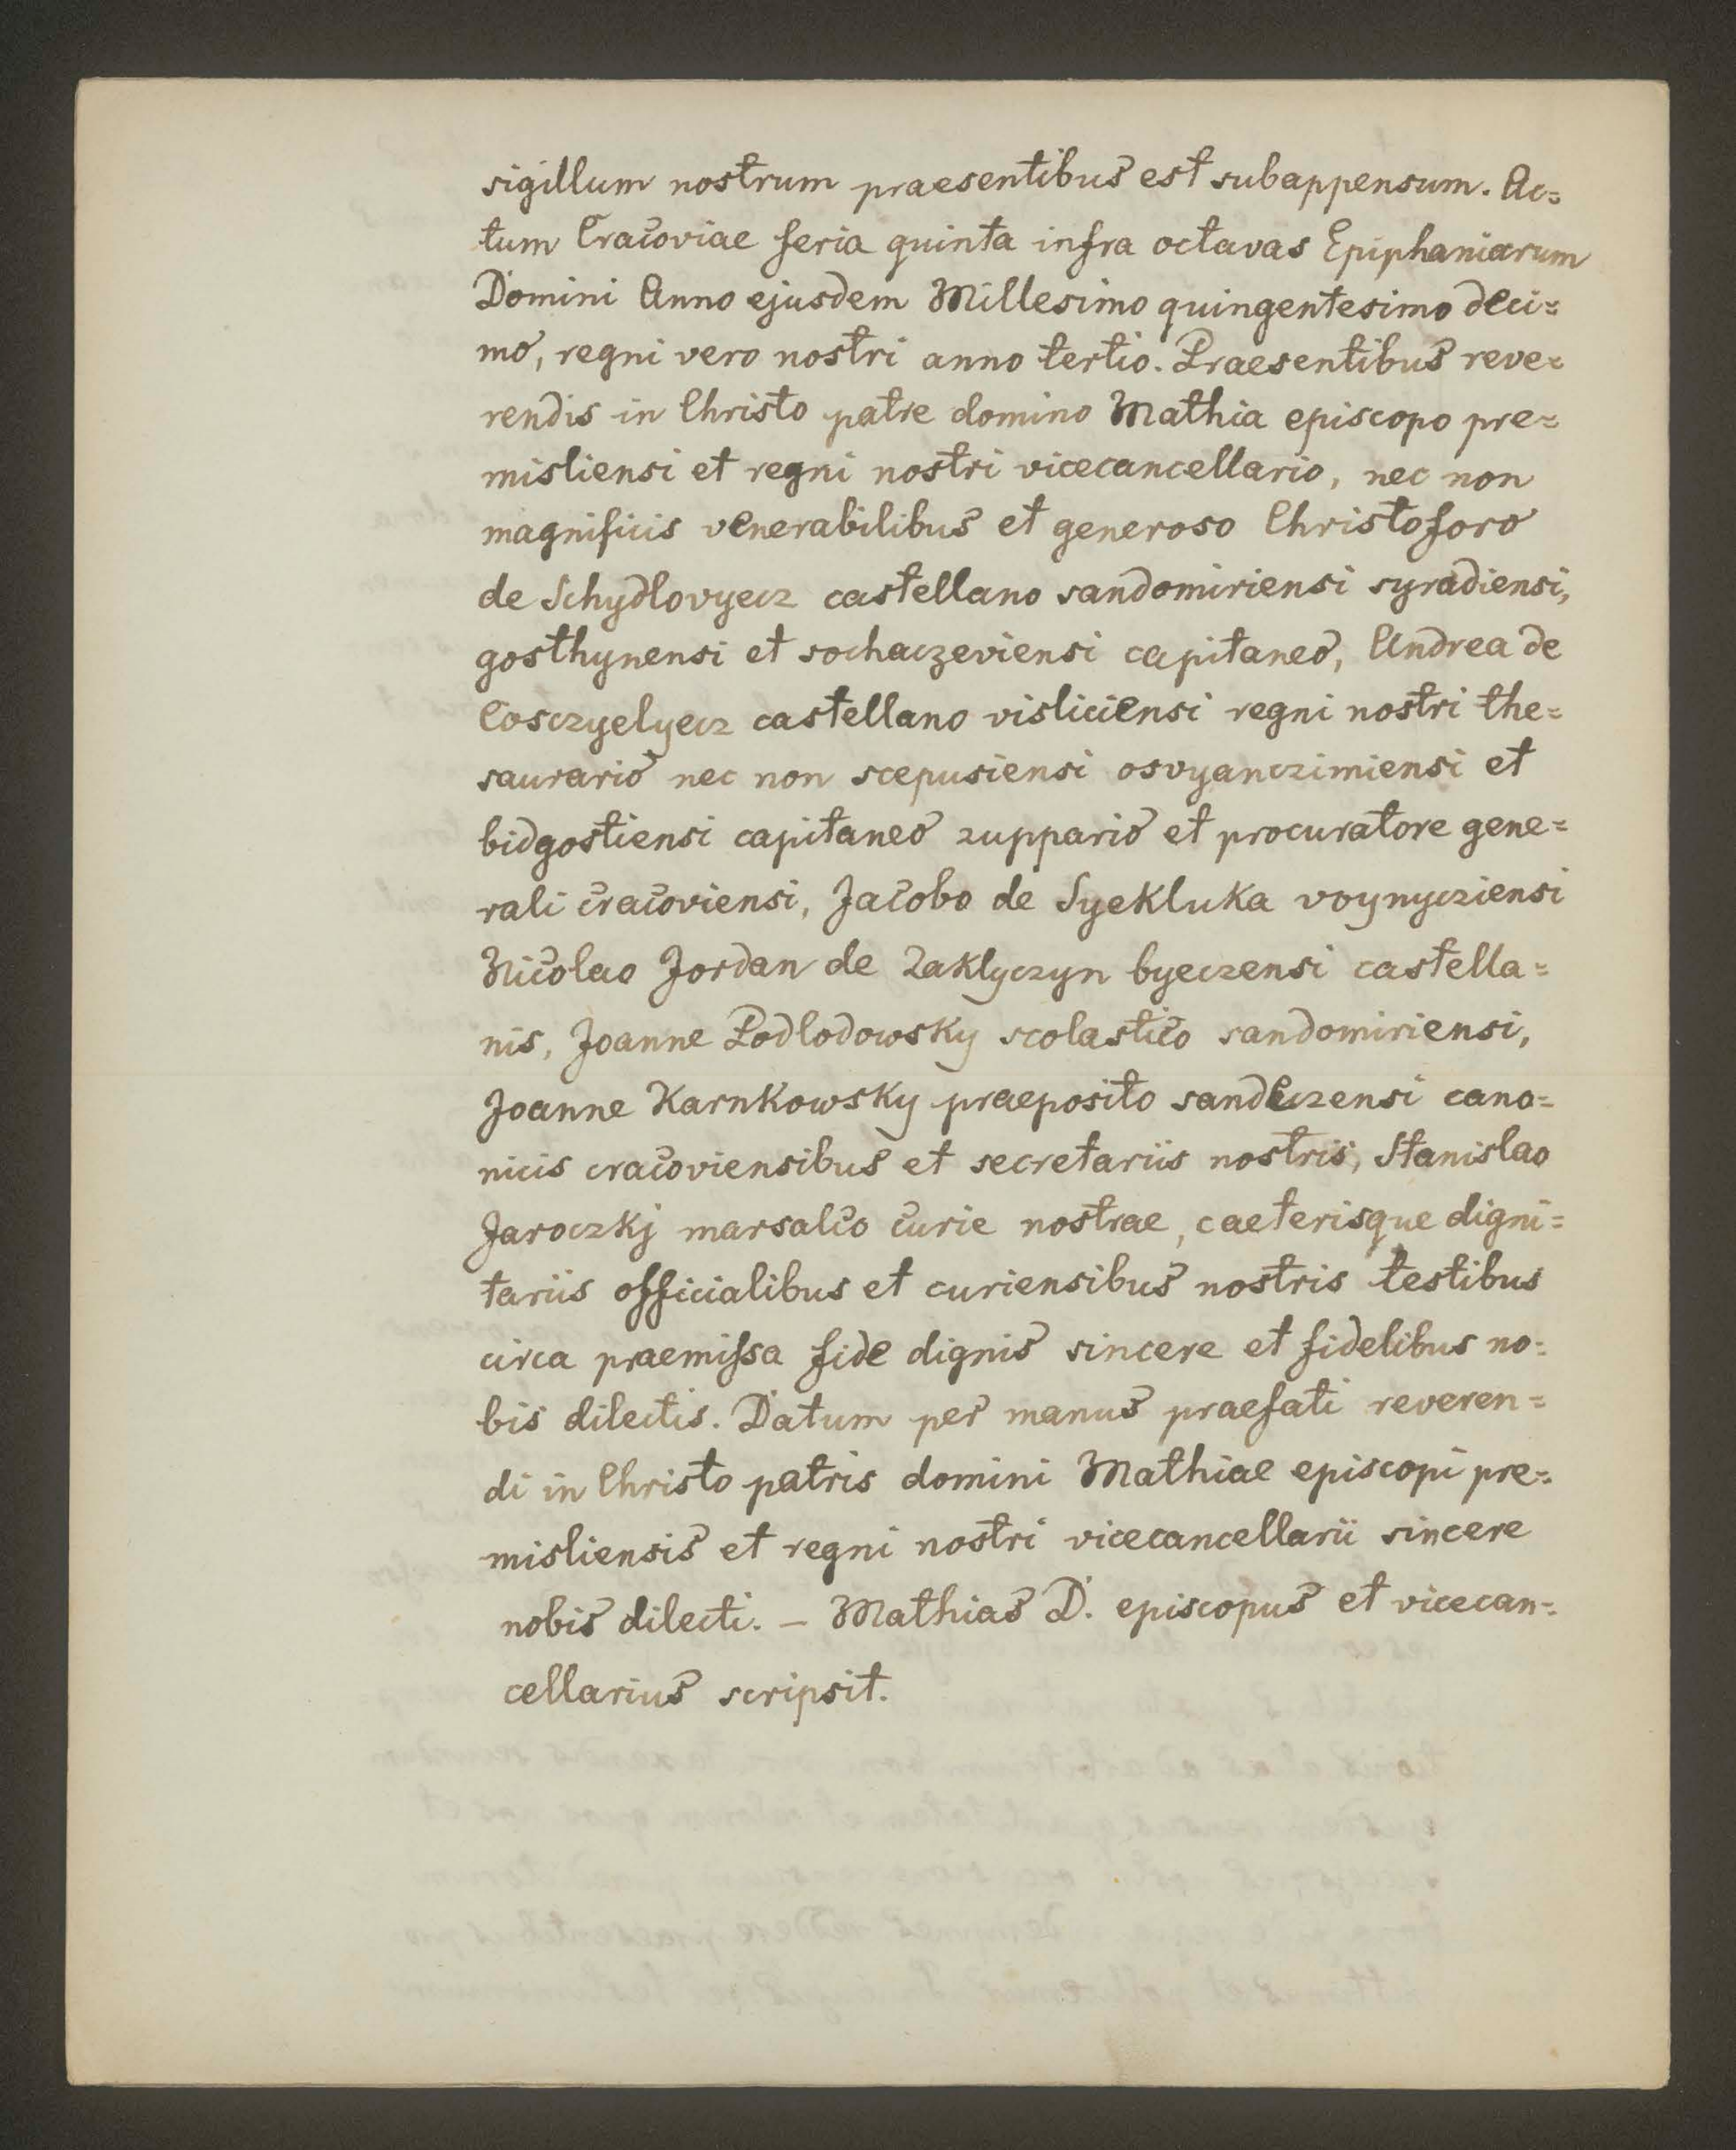 sigillum nostrum praesentibus est subappensum. Ac=
tum Cracoviae feria quinta infra octavas Epiphaniarum
Domini Anno ejusdem Millesimo quingentesimo deci=
mo, regni vero nostri anno tertio. Praesentibus reve=
rendis in Christo patre domino Mathia episcopo pre=
misliensi et regni nostri vicecancellario, nec non
magnificis venerabilibus et generoso Christoforo
de Schydlovyecz castellano sandomiriensi syradiensi,
gosthynensi et sochaczeviensi capitaneo, Andrea de
Cosczyelyecz castellano visliciensi regni nostri the=
saurario nec non scepusiensi osvyanczimiensi et
bidgostiensi capitaneo zuppario et procuratore gene=
rali cracoviensi, Jacobo de Syekluka voynycziensi
Nicolao Jordan de Zaklyczyn byeczensi castella=
nis, Joanne Podlodowsky scolastico sandomiriensi,
Joanne Karnkowsky praeposito sandeczensi cano=
nicis cracoviensibus et secretariis nostris, Stanislao
Jaroczkj marsalco curie nostrae, caeterisque digni=
tariis officialibus et curiensibus nostris testibus
circa praemissa fide dignis sincere et fidelibus no=
bis dilectis. Datum per manus praefati reveren=
di in Christo patris domini Mathiae episcopi pre=
misliensis et regni nostri vicecancellarii sincere
nobis dilecti. – Mathias D. episcopus et vicecan=
cellarius scripsit.